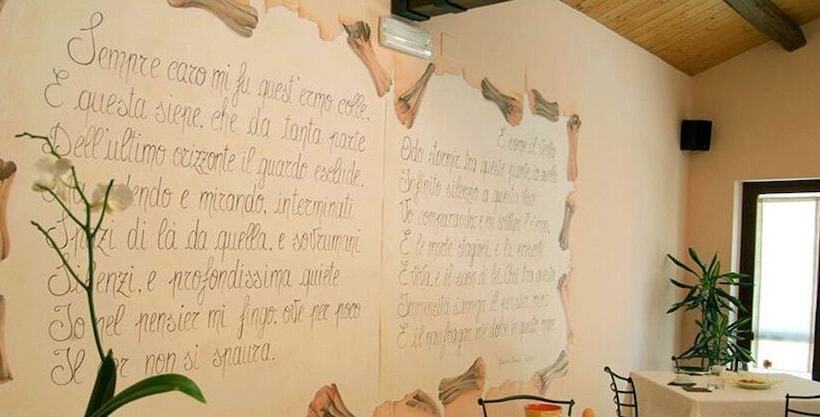 Sempre caro mi fu quest'ermo colle,
E questa siepe, che da tanta parte
Dell'ultimo orizzonte il guardo esclude.
sedendo e mirando, interminati
Spazi di là da quella, e sovrumani
Silenzi, e profondissima quiete
Io nel pensier mi fingo, ove per poco
Il cor non si spaura.
E come il vento
Odo stormir tra queste piante, io quello
Infinito silenzio a questa voce
Vo comparando: e mi sovvien l'eterno,
E le morte stagioni, e la presente
E viva, e il suon di lei. Così tra questa
Immensità s'annega il pensier mio:
E il naufragar m'è dolce in questo mare.